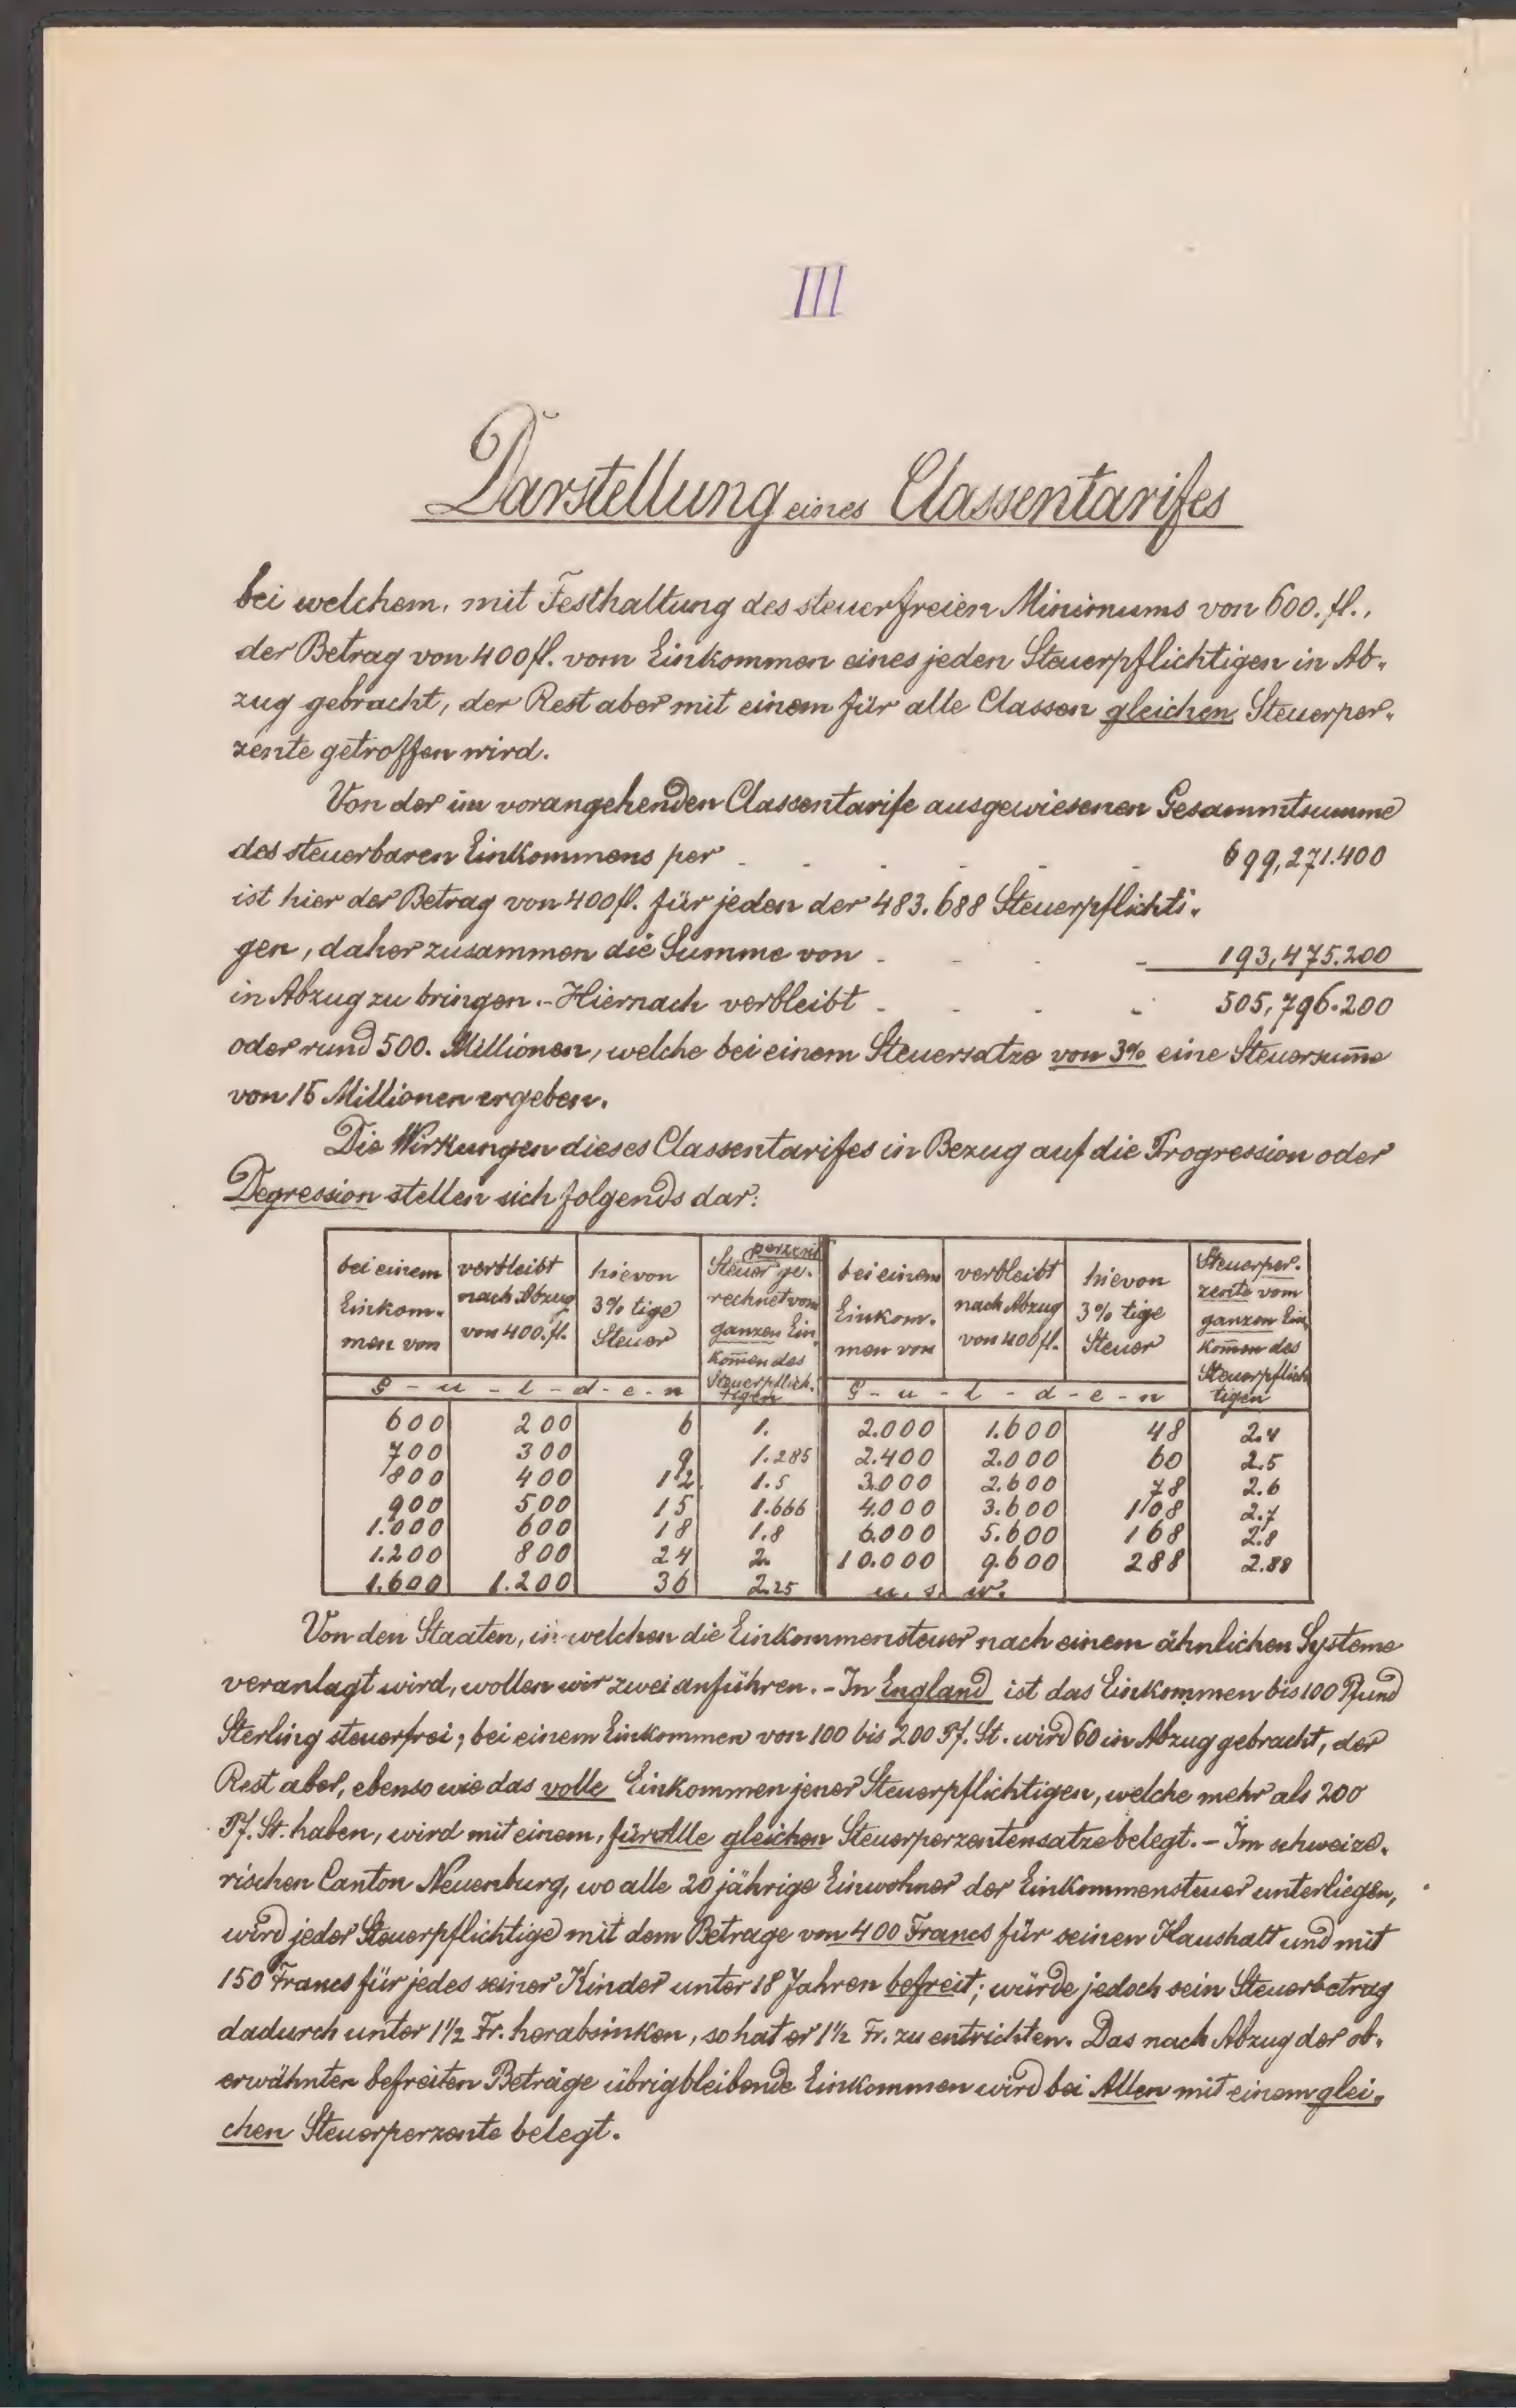 III
Darstellung eines Classentarifes
bei welchem, mit Festhaltung des steuerfreien Minimums von 600. fl.,
der Betrag von 400 fl. vom Einkommen eines jeden Steuerpflichtigen in Ab-
zug gebracht, der Rest aber mit einem für alle Classen gleichen Steuerper-
zente getroffen wird.
Von der im vorangehenden Classentarife ausgewiesenen Gesammtsumme
des steuerbaren Einkommens per - - - - - - 699,271.400
ist hier der Betrag von 400 fl. für jeden der 483.688 Steuerpflichti-
gen, daher zusammen die Summe von - - - - 193,475.200
in Abzug zu bringen. - Hiernach verbleibt - - - - 505,796.200
oder rund 500. Millionen, welche bei einem Steuersatze von 3% eine Steuersum̅e
von 15 Millionen ergeben.
Die Wirkungen dieses Classentarifes in Bezug auf die Progression oder
Degression stellen sich folgends dar:
bei einem Einkom-men von | verbleibt nach Abzug von 400. fl. | hievon 3% tige Steuer | perzent Steuer ge-rechnet vom ganzen Ein-kom̅en des Steuerpflich-tigen | bei einem Einkom-men von | verbleibt nach Abzug von 400 fl. | hievon 3% tige Steuer | Steuerper-zente vom ganzen Ein-kom̅en des Steuerpflich-tigen
G - u - l - d - e - n | G - u - l - d - e - n
600 | 200 | 6 | 1. | 2.000 | 1.600 | 48 | 2.4
700 | 300 | 9 | 1.285 | 2.400 | 2.000 | 60 | 2.5
800 | 400 | 12 | 1.5 | 3.000 | 2.600 | 78 | 2.6
900 | 500 | 15 | 1.666 | 4.000 | 3.600 | 108 | 2.7
1.000 | 600 | 18 | 1.8 | 6.000 | 5.600 | 168 | 2.8
1.200 | 800 | 24 | 2. | 10.000 | 9.600 | 288 | 2.88
1.600 | 1.200 | 36 | 2.25 | u. s. w.
Von den Staaten, in welchen die Einkommensteuer nach einem ähnlichen Systeme
veranlagt wird, wollen wir zwei anführen. - In England ist das Einkommen bis 100 Pfund
Sterling steuerfrei; bei einem Einkommen von 100 bis 200 Pf. St. wird 60 in Abzug gebracht, der
Rest aber, ebenso wie das volle Einkommen jener Steuerpflichtigen, welche mehr als 200
Pf. St. haben, wird mit einem, für Alle gleichen Steuerperzentensatze belegt. - Im schweize-
rischen Canton Neuenburg, wo alle 20 jährige Einwohner der Einkommensteuer unterliegen,
wird jeder Steuerpflichtige mit dem Betrage von 400 Francs für seinen Haushalt und mit
150 Francs für jedes seiner Kinder unter 18 Jahren befreit; würde jedoch sein Steuerbetrag
dadurch unter 1½ Fr. herabsinken, so hat er 1½ Fr. zu entrichten. Das nach Abzug der ob-
erwähnten befreiten Beträge übrigbleibende Einkommen wird bei Allen mit einem glei-
chen Steuerperzente belegt.